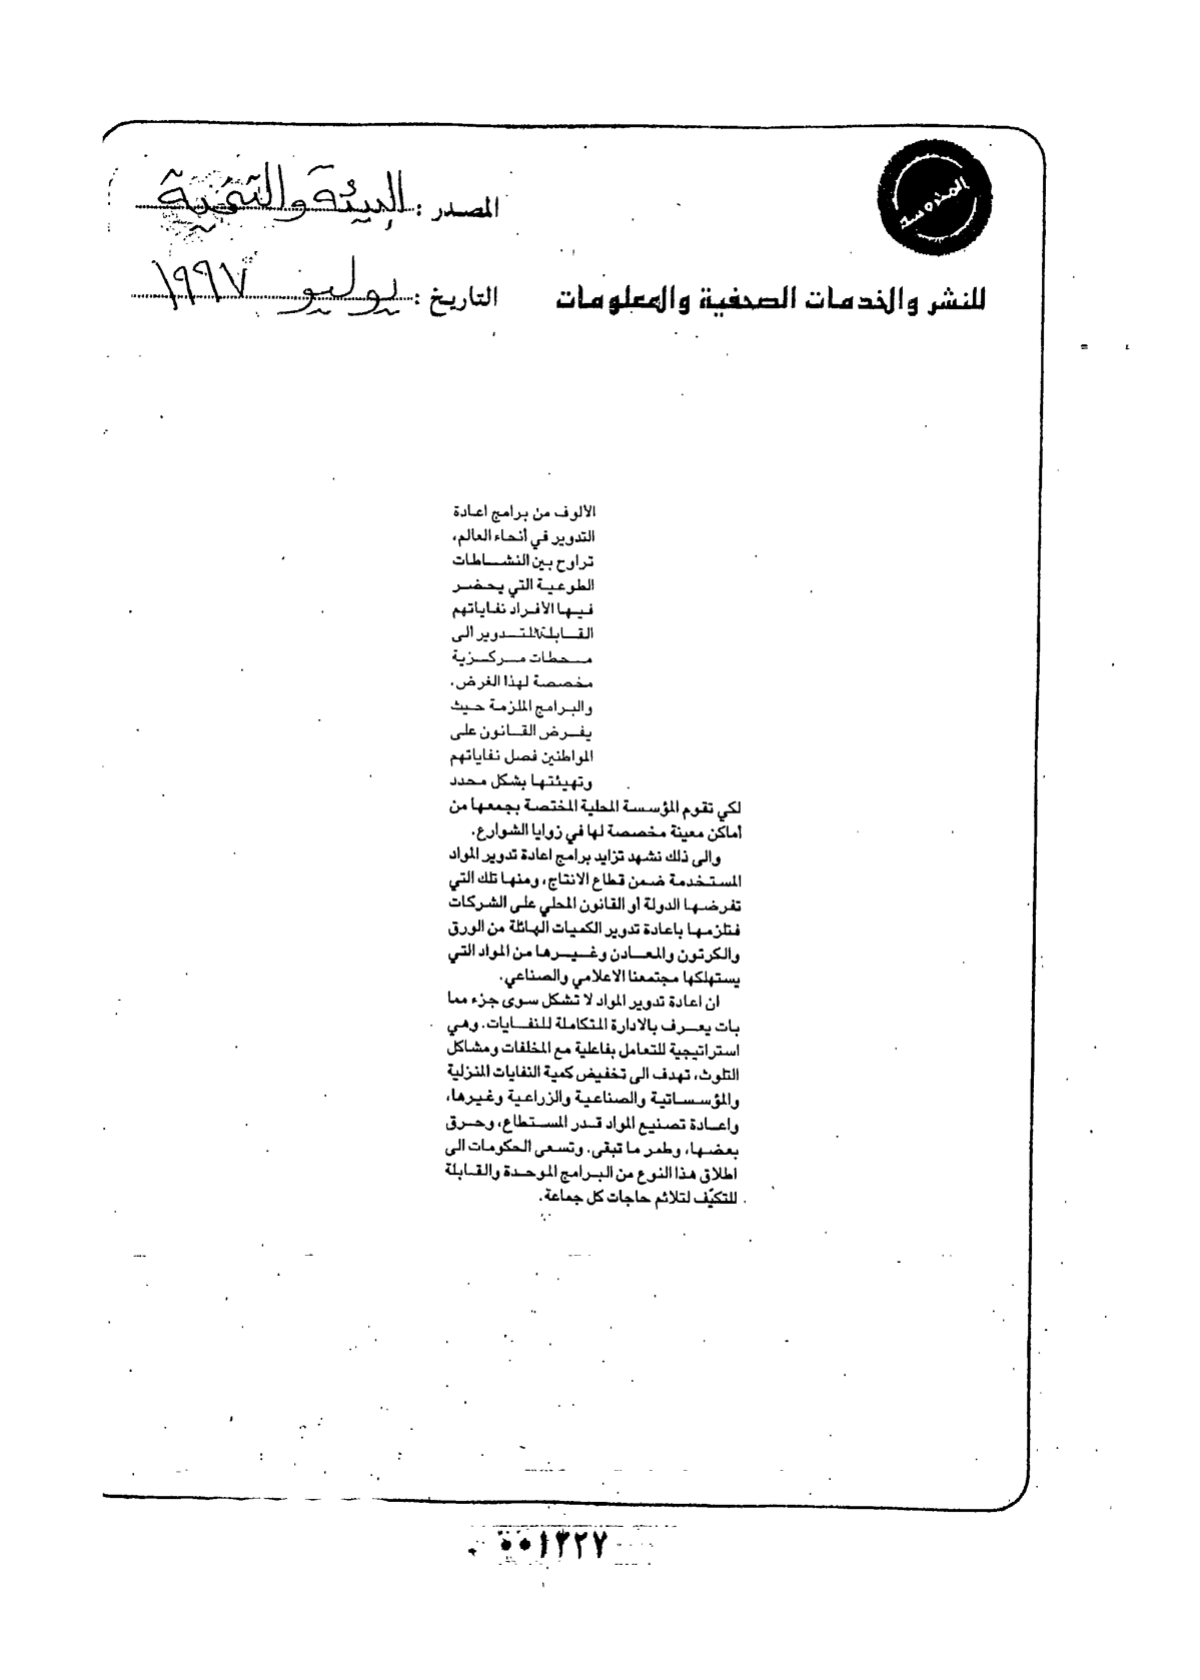 المحروسة
للنشر والخدمات الصحفية والمعلومات
المصدر : البيئة والتنمية
التاريخ : يوليو ١٩٩٧
الألوف من برامج اعادة
التدوير في أنحاء العالم،
تراوح بين النشاطات
الطوعية التي يحضر
فيها الأفراد نفاياتهم
القابلة للتدوير الى
محطات مركزية
مخصصة لهذا الغرض.
والبرامج الملزمة حيث
يفرض القانون على
المواطنين فصل نفاياتهم
وتهيئتها بشكل محدد
لكي تقوم المؤسسة المحلية المختصة بجمعها من
أماكن معينة مخصصة لها في زوايا الشوارع.
والى ذلك نشهد تزايد برامج اعادة تدوير المواد
المستخدمة ضمن قطاع الانتاج، ومنها تلك التي
تفرضها الدولة أو القانون المحلي على الشركات
فتلزمها باعادة تدوير الكميات الهائلة من الورق
والكرتون والمعادن وغيرها من المواد التي
يستهلكها مجتمعنا الاعلامي والصناعي.
ان اعادة تدوير المواد لا تشكل سوى جزء مما
بات يعرف بالادارة المتكاملة للنفايات. وهي
استراتيجية للتعامل بفاعلية مع المخلفات ومشاكل
التلوث، تهدف الى تخفيض كمية النفايات المنزلية
والمؤسساتية والصناعية والزراعية وغيرها،
واعادة تصنيع المواد قدر المستطاع، وحرق
بعضها، وطمر ما تبقى. وتسعى الحكومات الى
اطلاق هذا النوع من البرامج الموحدة والقابلة
للتكيّف لتلائم حاجات كل جماعة.
٠٠١٢٢٧